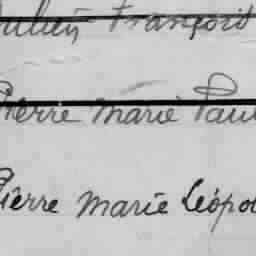 Julien François
Pierre Marie Paul
Pierre Marie Léopol